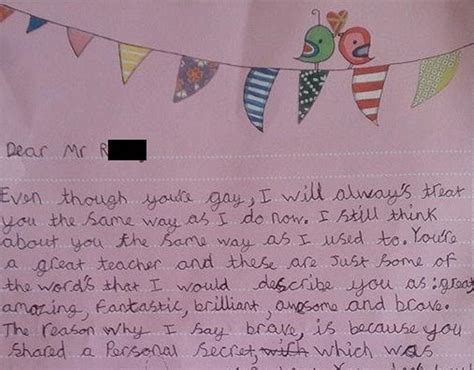 Dear Mr R
Even though you're gay, I will always's treat
you the same way as I do now. I still think
about you the same way as I used to. You're
a great teacher and these are just some of
the word's that I would describe you as: great
amazing, fantastic, brilliant, awsome and brave.
The reason why I say brave, is because you
shared a Personal secret, with which was